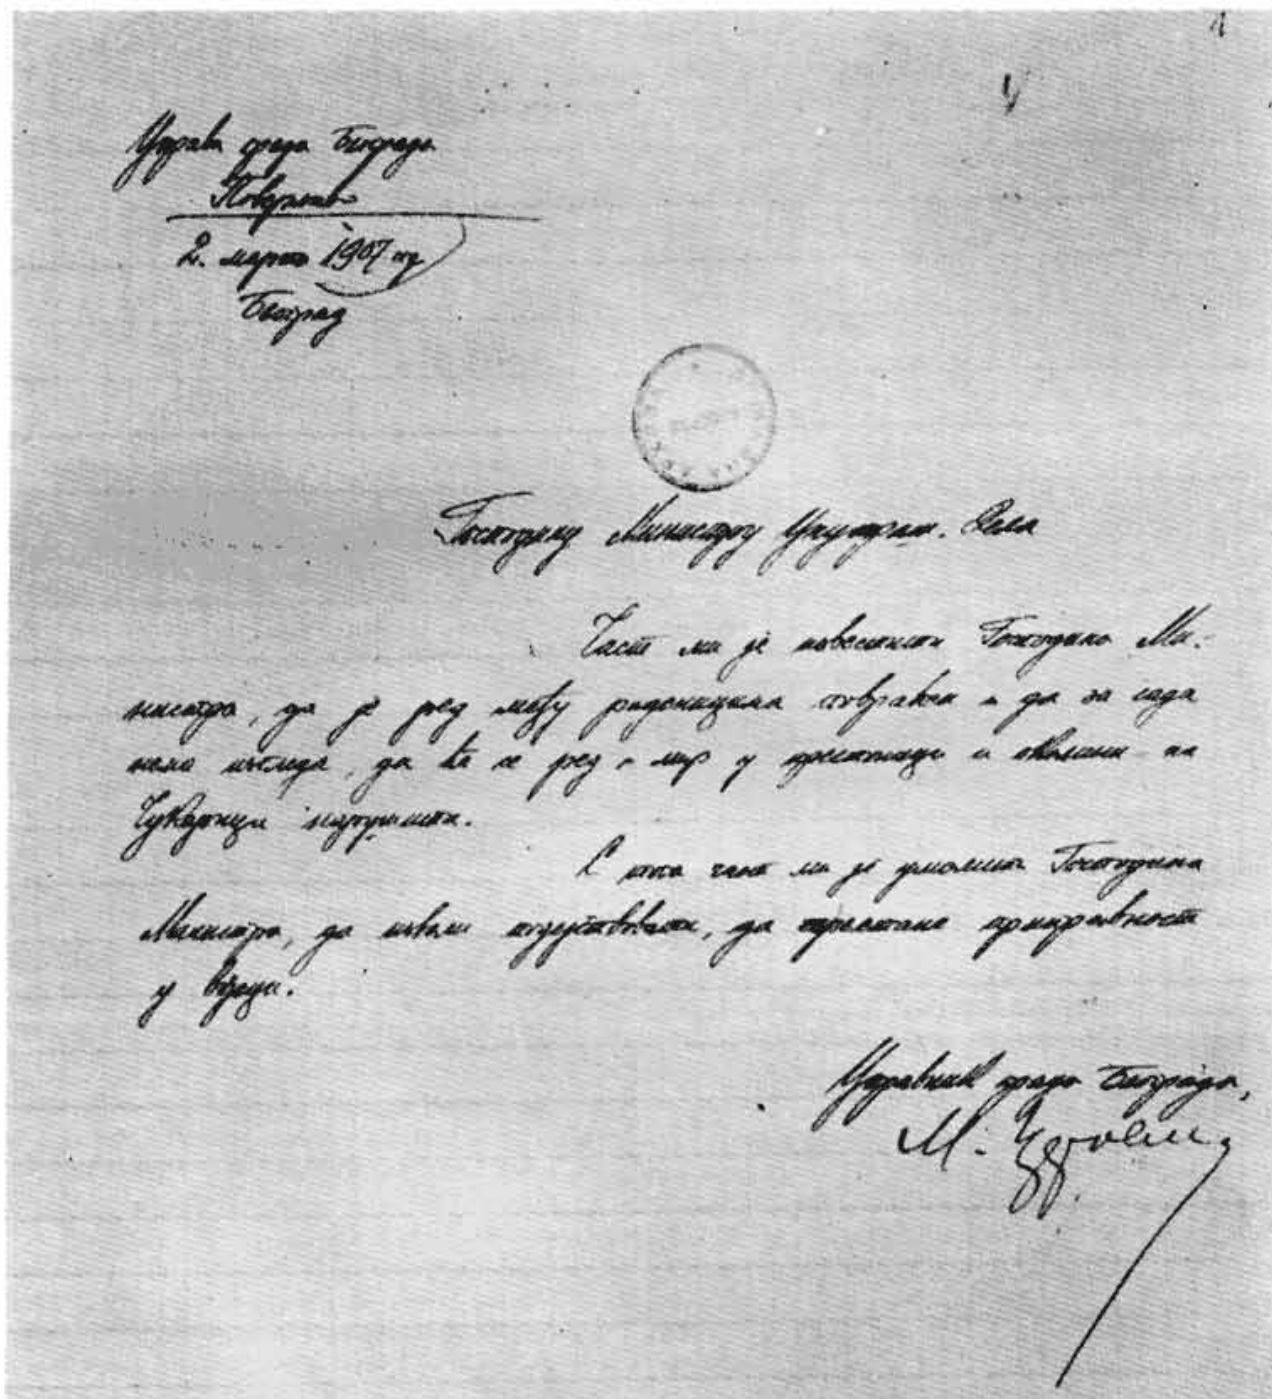 1
Управа града Београда
Поверљиво
2. марта 1907 год
Београд
Господину Министру Унутраш. Дела
Част ми је известити Господина Ми-
нистра, да је ред међу раденицима повраћен и да за сада
нема изгледа, да ће се ред и мир у престоници и околини на
Чукарици нарушити.
С тога част ми је умолити Господина
Министра, да изволи подејствовати, да престане приправност
у војсци.
Управник града Београда,
М.